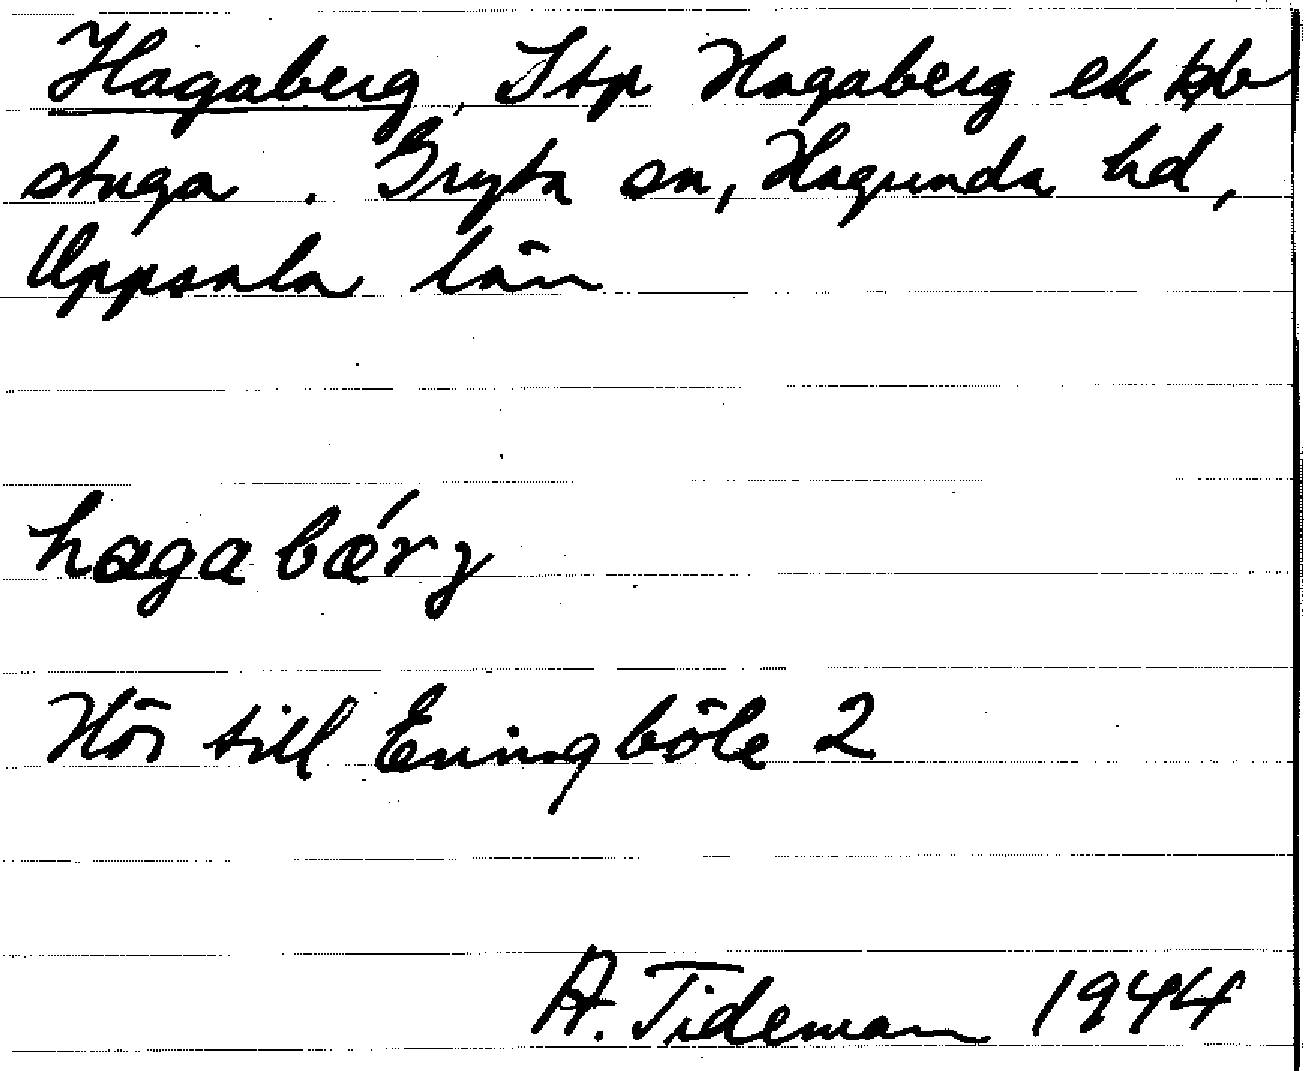 Hagaberg, Stp Hagaberg ek kbl
stuga. Gryta sn, Hagunda hd,
Uppsala län
hagabǽrg
Hör till Eningböle 2
A. Tideman 1944